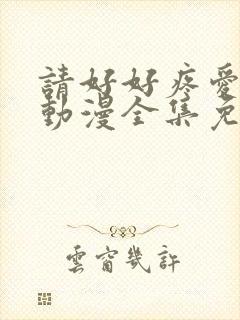 請好好疼愛
動漫全集免
雲窗幾許